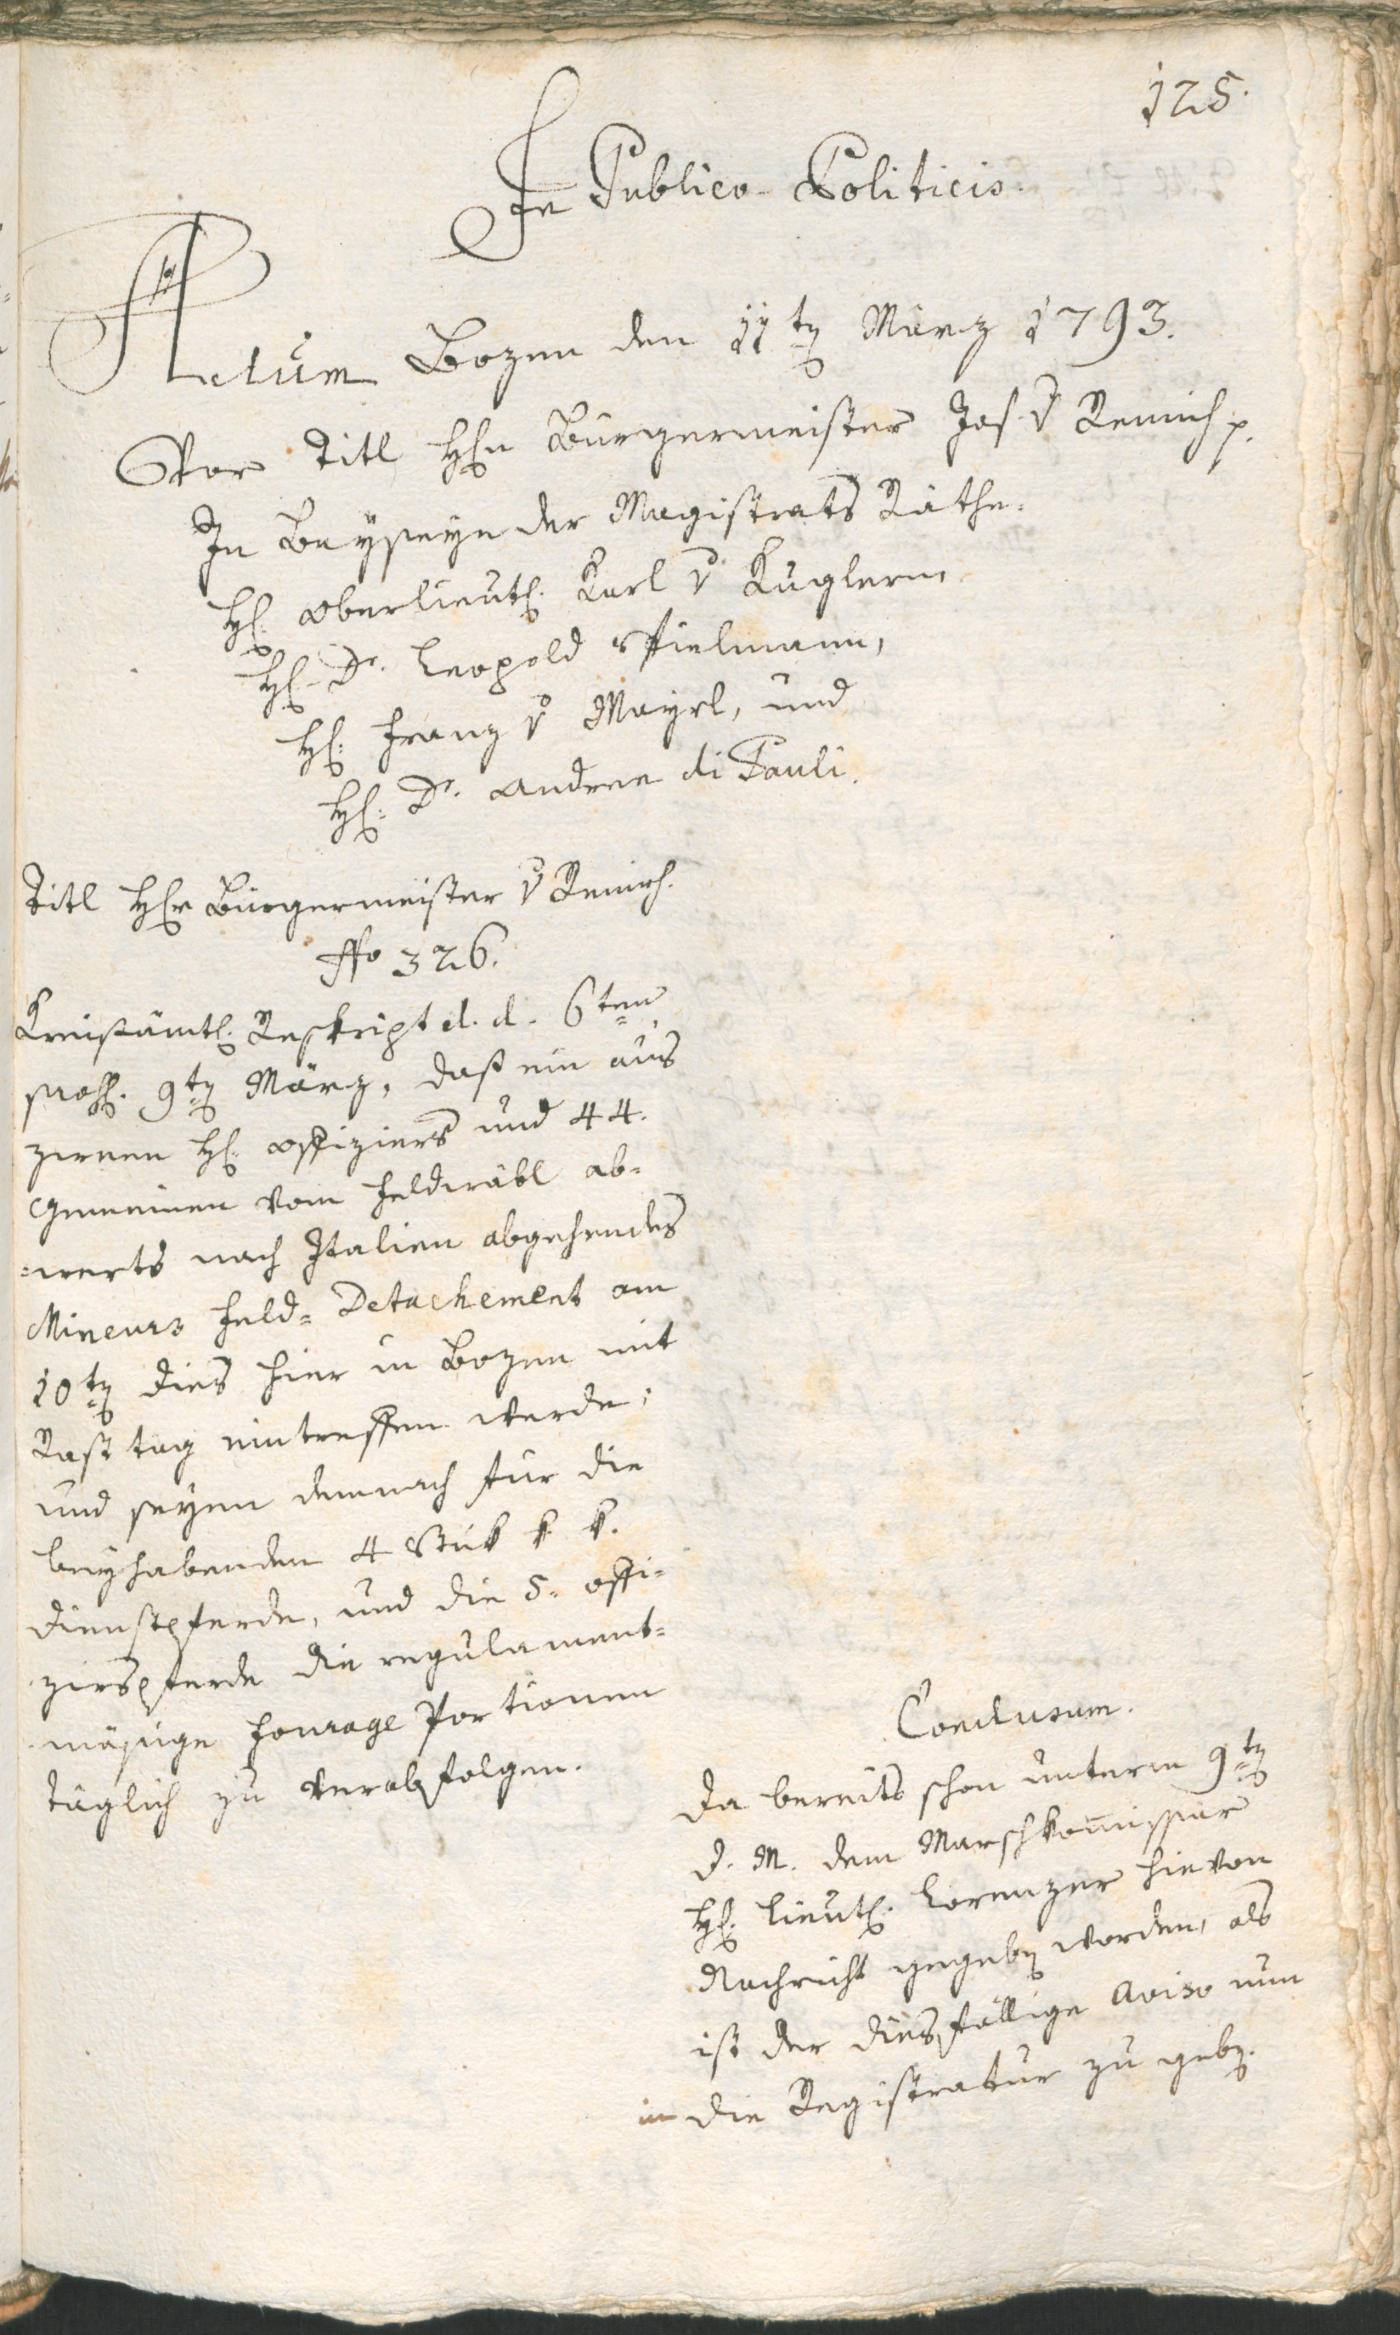 125.
In Publico-Politicis.
Actum Bozen den 11tn März 1793.
Vor Titl Hħn Bürgermeister Jos. v Remich p.
In Beyseyn der Magistrats Räthe.
H: Oberlieut: Karl v Kuglern
H: Dr. Leopold Stielmann,
H: Franz v Mayrl, und
H: Dr. Andree di Pauli.
Titl Hħr Bürgermeister v Remich.
No 326.
Kreisämtl: Reskript d. d. 6ten
9tn März, daß ein aus
zween H: Offiziers und 44.
Gemeinen vom Feldwäbl ab-
=werts nach Italien abgehendes
Mineurs Feld= Detachement am
10tn dies hier in Bozen mit
Rasttag eintreffen werde;
und seyen demnach für die
beyhabenden 4 Stük k. k.
dienstpferde, und die 5. offi-
zirspferde die regulament-
mäßige Fourage Portionen
täglich zu verabfolgen.
Conclusum.
Da bereits schon unterm 9tn
d. M. dem Marschkommissär
H: Lieut: Lorenzer hievon
Nachricht gegebn worden, als
ist der diesfällige Aviso nun
in die Registratur zu gebn.